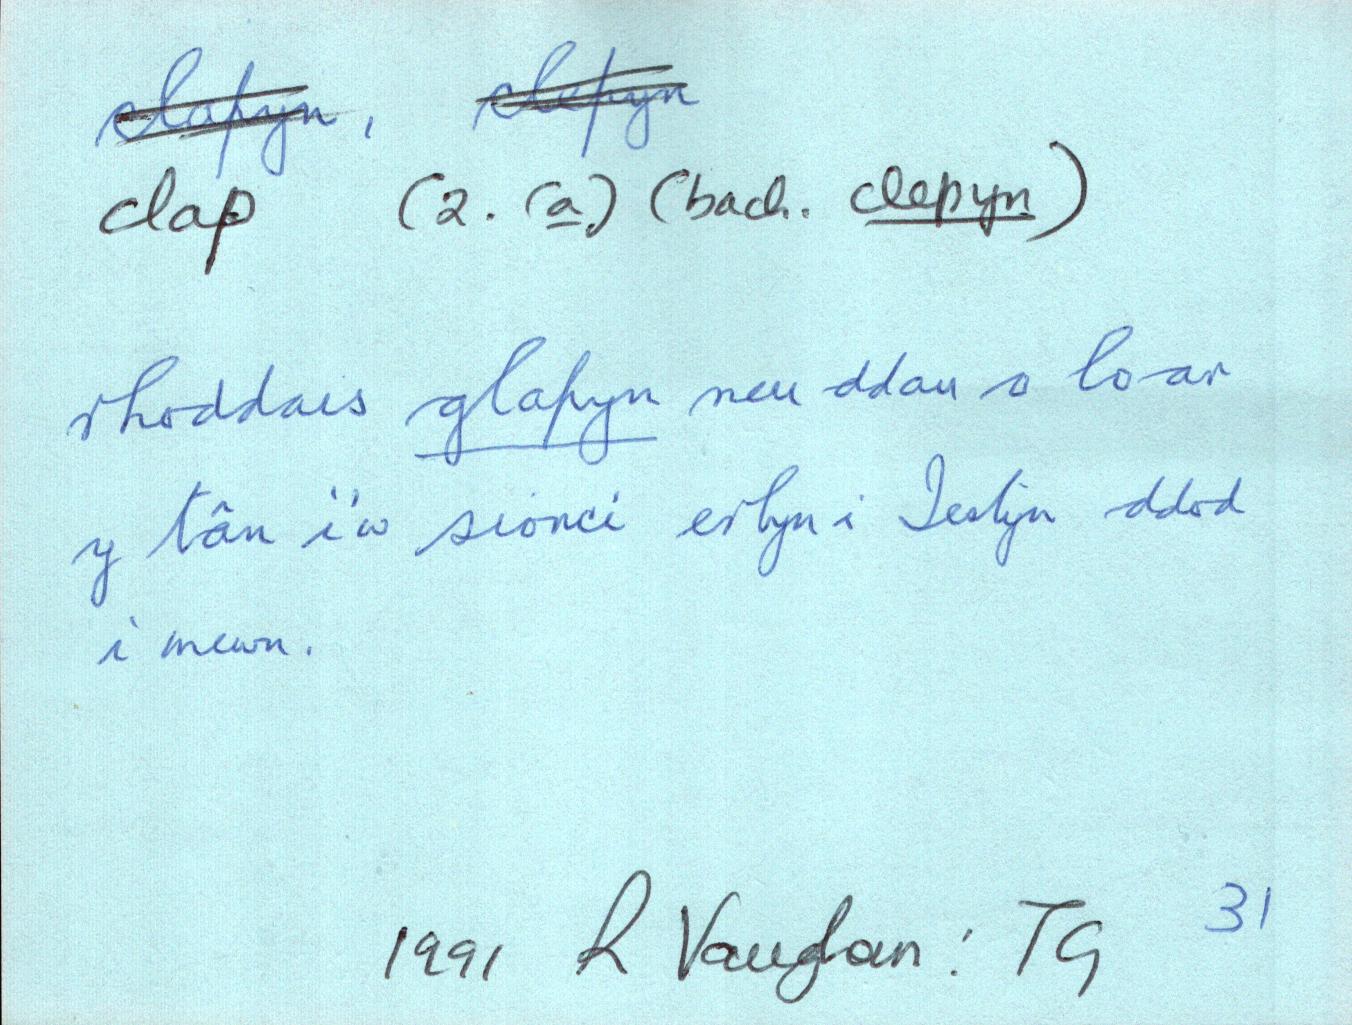 clapyn, clepyn
clap (2. (a)) (bach. clepyn)
rhoddais glapyn neu ddau o lo ar
y tân i'w sionci erbyn i Iestyn ddod
i mewn.
1991 R Vaughan: TG 31